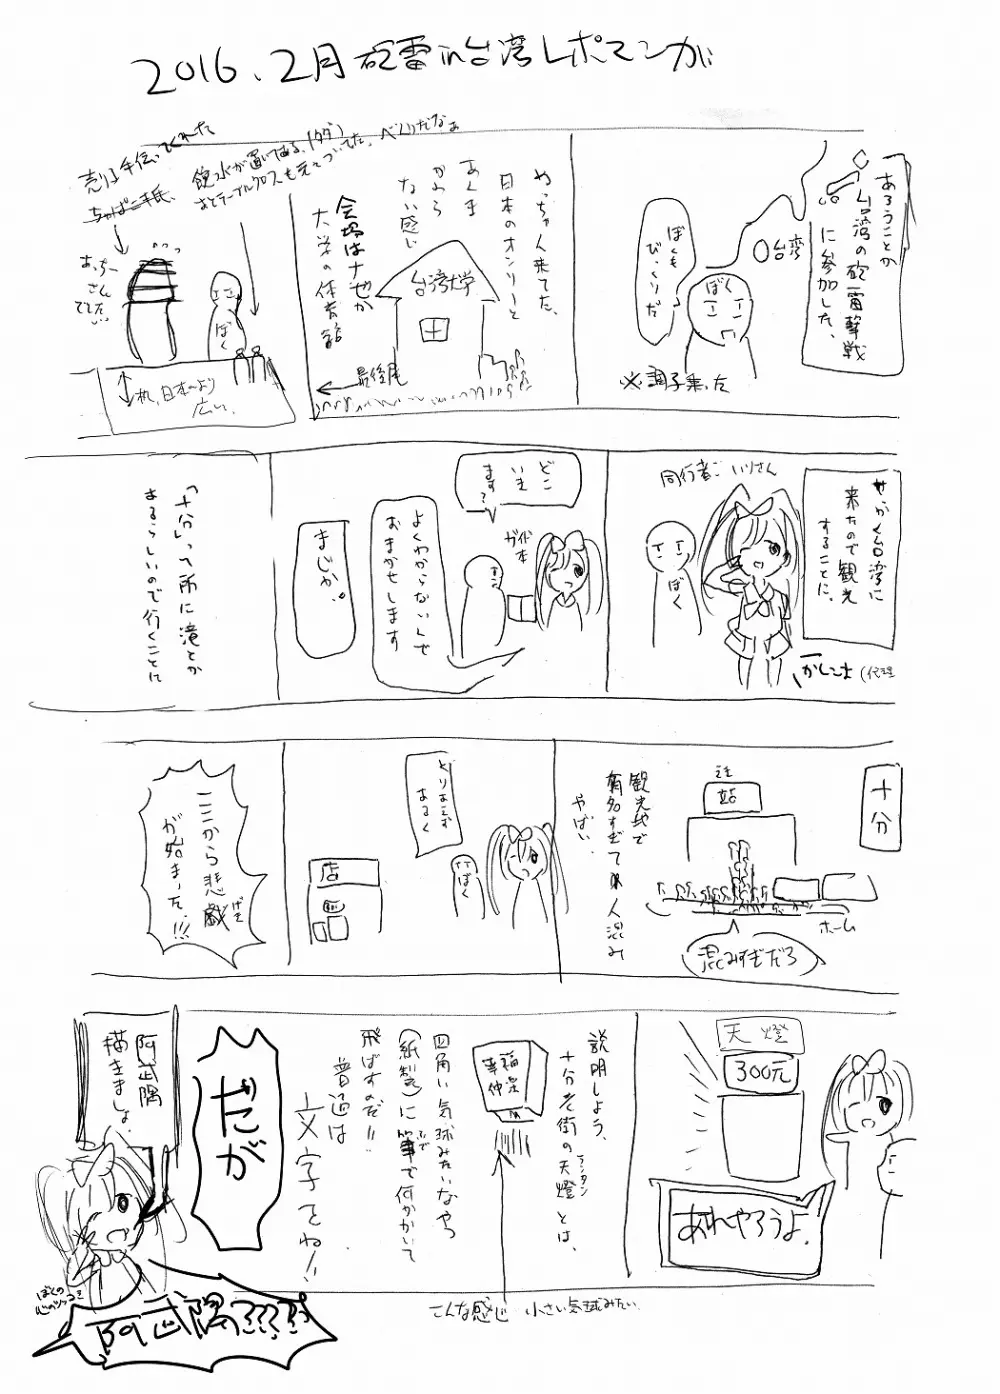 2016.2月砲雷in台湾レポマンガ
あろうことか
台湾の砲雷撃戦
に参加した、
台湾
ぼくも
びっくりだ
ぼく
※調子乗った
めっちゃ人来てた、
日本のオンリーと
あんま
かわら
ない感じ
会場はナゼか
大学の体育館
台湾大学
最後尾
売り子手伝ってくれた
ちゃぱ
飲水が置いてある、(タダ)
あとテーブルクロスも元々ついてた、べんりだなぁ
あっちー
さん
でした
ぼく
机、日本のより
広い、
せっかく台湾に
来たので観光
することに、
同行者こいりさん
ぼく
かしこま
(代理
どこ
いき
ます?
ガイド
本
よくわからないんで
おまかせします
まじか。
「十分」って所に滝とか
あるらしいので行くことに
十分
站
観光地で
有名すぎて
人混み
やばい、
ホーム
混みすぎだろ
とりあえず
あるく
ぼく
店
ここから悲劇
げき
が始まった!!!
天燈
300元
あれやろうよ!
説明しよう、
十分老街の天燈とは、
四角い気球みたいなやつ
(紙製)に筆で何かかいて
ふで
飛ばすのだ!!
普通は
文字をね!!
幸福
こんな感じ 小さい気球みたい
だが
阿武隈
描きましょ、
ぼくの
心のツッコミ
阿武隈????